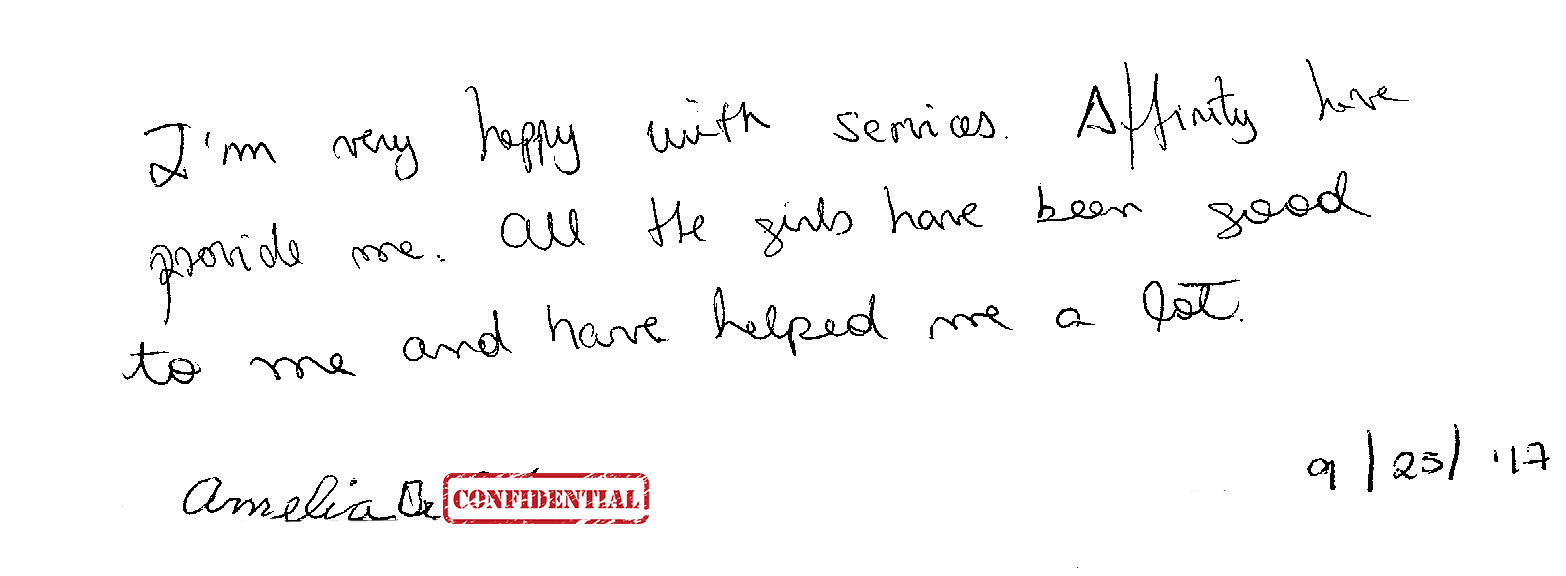 I'm very happy with services. Affinity have
provide me. All the girls have been good
to me and have helped me a lot.
9/25/'17
Amelia De CONFIDENTIAL